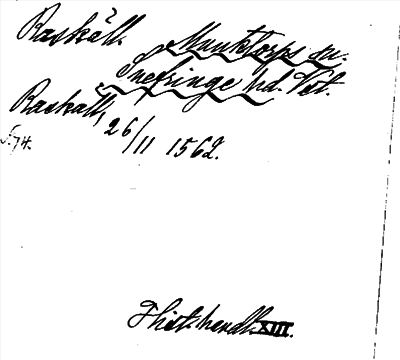 Raskäll.
Munktorps sn.
Snefringe hd. Vst.
Raskall,
26/11 1562.
S. 74.
Hist. handl. XIII.